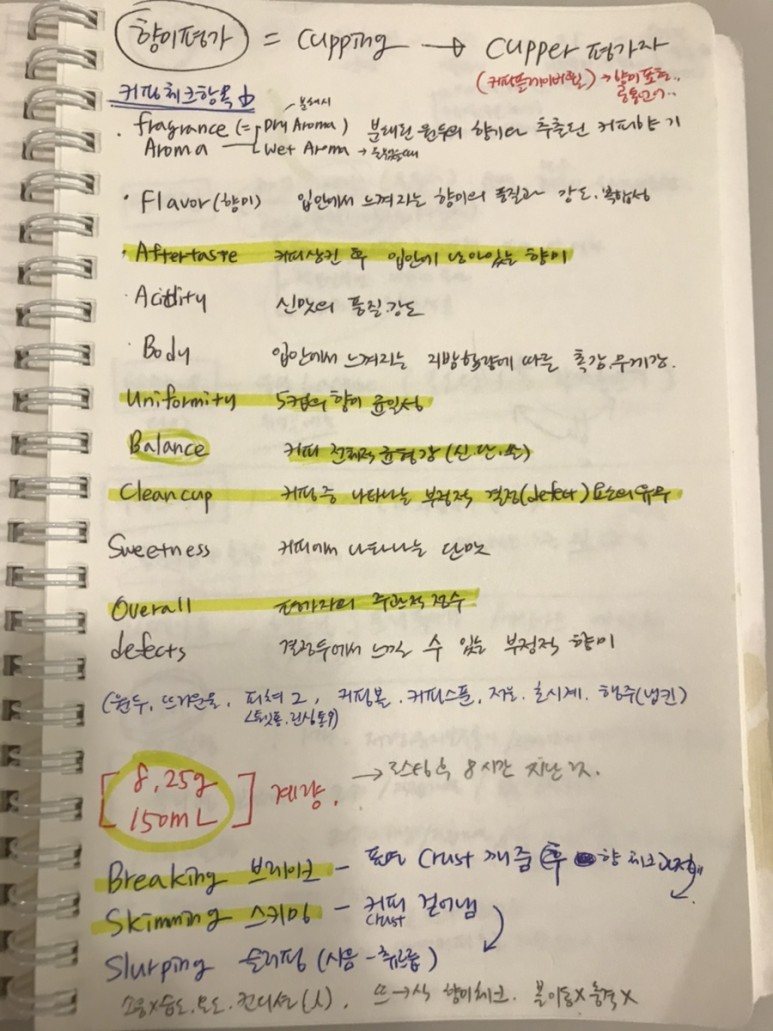 향미평가 = Cupping → Cupper 평가자
(커피플레이버휠) → 향미표현..
공통언어..
커핑체크항목
분쇄시
· fragrance (= Dry Aroma) 분쇄된 원두의 향기나 추출된 커피향기
Aroma Wet Aroma →
· Flavor (향미) 입안에서 느껴지는 향미의 품질과 강도. 복합성
· Aftertaste 커피삼킨 후 입안에 남아있는 향미
· Acidity 신맛의 품질.강도
· Body 입안에서 느껴지는 지방함량에 따른 촉감.무게감.
Uniformity 5컵의 향미 균일성
Balance 커피 전체적 균형감 (신.단.쓴)
Clean cup 커피중 나타나는 부정적 결점(defect) 요소의 유무
Sweetness 커피에서 나타나는 단맛
Overall 평가자의 주관적 점수
defects 결점두에서 느낄 수 있는 부정적 향미
(원두, 뜨거운물, 피쳐 2, 커핑볼. 커피스푼, 저울. 초시계. 행주(냅킨)
[8.25g
150mL] 계량. → 로스팅 후 8시간 지난 것.
Breaking 브레이크 - 표면 Crust 깨줌 후 향 체크
Skimming 스키밍 - 커피 걷어냄
crust
Slurping 슬러핑 (시음 - 츄르릅)
소음X 습도. 온도. 컨디션(人). 뜨→식 향미체크. 볼이동X 충격X